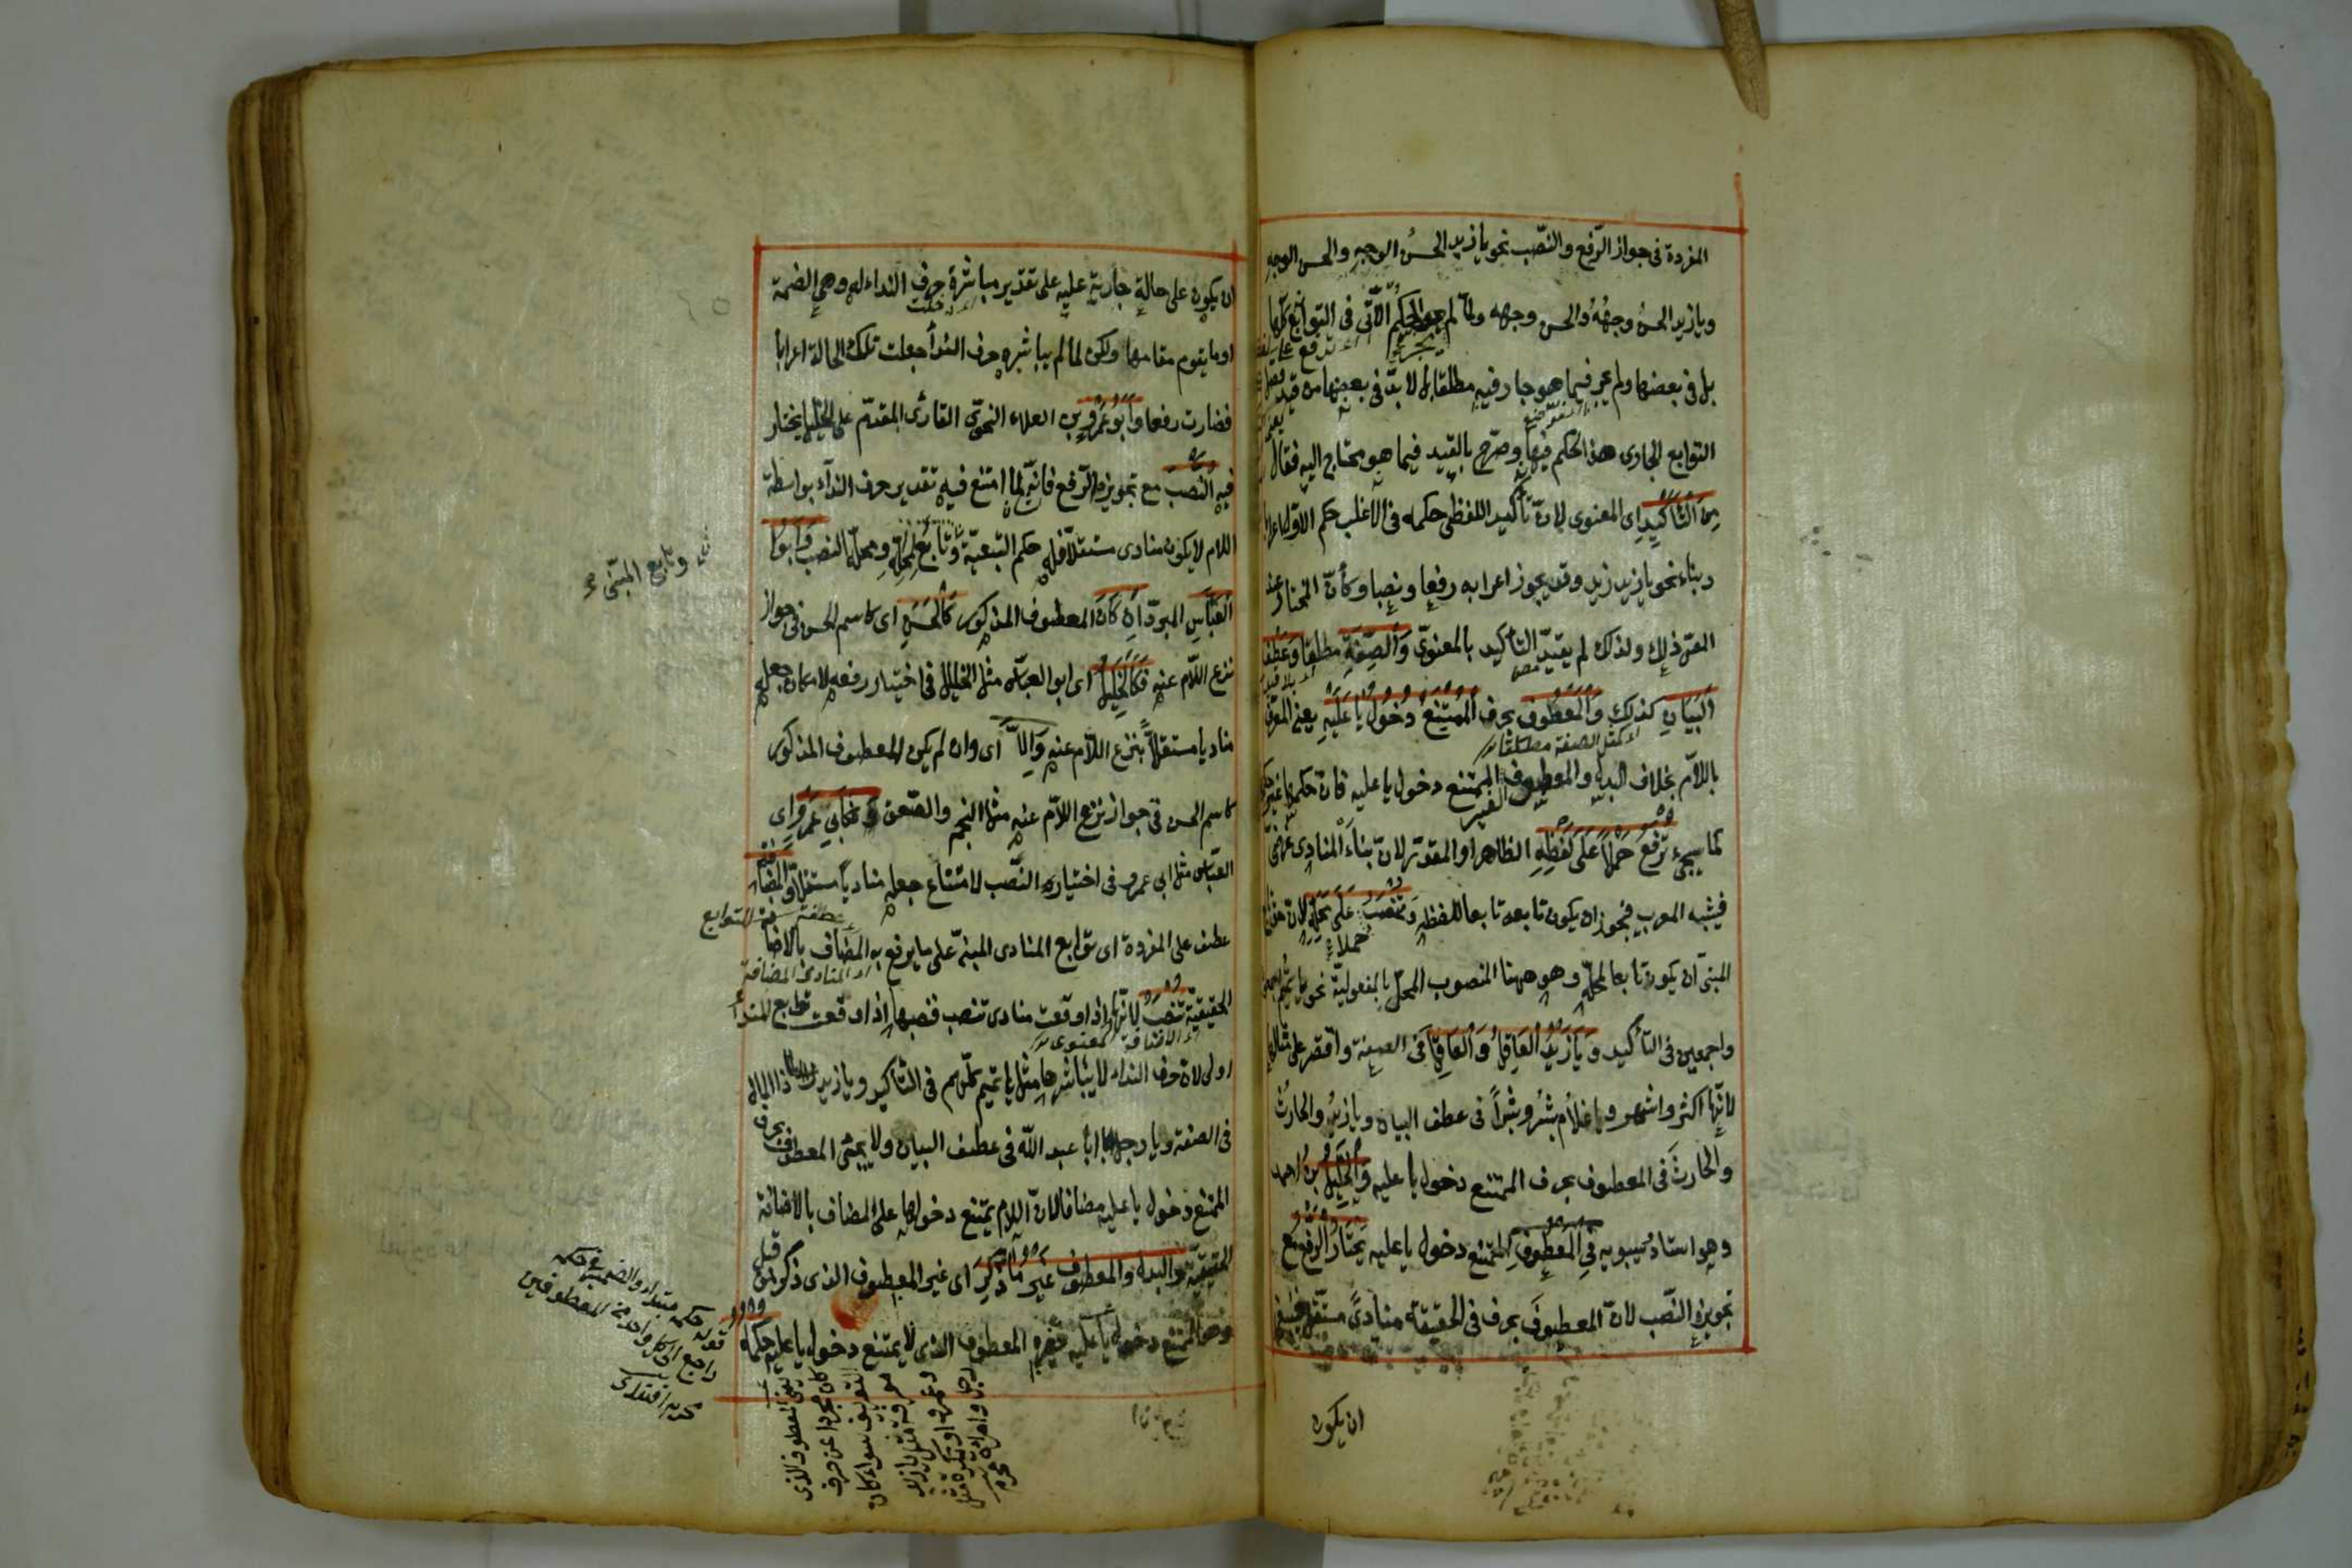 المفردة فى جواز الرّفع والنّصب نحو يا زيد الحسنُ الوجهِ والحسنَ الوجهِ
ويا زيد الحسنُ وجهُهُ والحسنَ وجهه ولمّا لم يجر الحكمُ الآتى فى التوابع كلّها
بل فى بعضها ولم يجر فيما هو جار فيه مطلقا بل لا بدّ فى بعضها من قيد
التوابع الجارى هذا الحكم فيها وصرّح بالقيد فيما هو محتاج اليه فقال
مِنَ التَّأكيدِ اى المعنوى لانّ تأكيد اللفظى حكمه فى الاغلب حكم الاوّل اعرابا
وبناء نحو يا زيد زيد وقد يجوز اعرابه رفعا ونصبا وكأنّ المختار عند
المصنّ ذلك ولذلك لم يقيّد التأكيد بالمعنوىّ وَالصِّفَةِ مطلقا وَعَطْفِ
البَيَانِ كذلك وَالمَعْطُوفِ بحرف المُمْتَنِعِ دُخُولُ يَا عَلَيْهِ يعنى المعرّف
باللاّم بخلاف البدل والمعطوف الغير الممتنع دخول يا عليه فانّ حكمهما غير حكمها
كما سيجىء تُرْفَعُ حَمْلاً عَلَى لَفْظِهِ الظاهر او المقدّر لانّ بناءَ المنادى عرضىّ
فيشبه المعرب فيجوز ان يكون تابعه تابعا للفظه وَتُنْصَبُ حملا عَلَى مَحَلِّهِ لانّ حقّ تابع
المبنىّ ان يكون تابعا لمحلّه وهو ههنا المنصوب المحلّ بالمفعولية نحو يا تيم اجمعون
واجمعين فى التأكيد وَيَا زَيْدُ العَاقِلُ وَالعَاقِلَ فى الصفة واقتصر على مثالها
لانّها اكثر واشهر ويا غلامُ بشرٌ وبشراً فى عطف البيان ويا زيدُ والحارثُ
والحارثَ فى المعطوف بحرف الممتنع دخول يا عليه وَالخَلِيلُ بن احمد
وهو استاد سيبويه فِى المَعْطُوفِ الممتنع دخول يا عليه يَخْتَارُ الرَّفْعَ مع
تجويزه النّصب لانّ المعطوفَ بحرف فى الحقيقة منادىً مستقلّ فينبغى
ان يكون
ان يكون على حالةٍ جاريةٍ عليه على تقدير مباشرة حرف النداء له وهى الضمة
او ما يقوم مقامها ولكن لما لم يباشره حرف الندأ جعلت تلك الحالة اعرابا
فصارت رفعا وَأَبُو عَمْرٍو بن العلاء النحوّى القارئ المقدّم على الخليل يختار
فيه النَّصْبَ مع تجويزه الرّفع فانّه لمّا امتنع فيه تقدير حرف الندآء بواسطة
اللام لا يكون منادى مستقلاّ فله حكم التبعيّة وتابع المبنى تابع لمحلّهِ ومحلّه النصب وَأَبُو
العَبَّاسِ المبرّد اِنْ كَانَ المعطوف المذكور كَالحَسَنِ اى كاسم الحسن فى جواز
نزع اللاّم عنه فَكَالخَلِيلِ اى ابو العباس مثل الخليل فى اختيار رفعه لامكان جعله
مناديا مستقلاًّ بنزع اللاّم عنه وَإِلاَّ اى وان لم يكن المعطوف المذكور
كاسم الحسن فى جواز نزع اللاّم عنه مثل النجم والصّعق فَكَأَبِى عَمْرٍو اى
العبّاس مثل ابى عمرو فى اختياره النّصب لامتناع جعله منادياً مستقلاّ وَالمُضَافَةُ
عطف على المفردة اى توابع المنادى المبنىّ على ما يرفع به المضاف بالاضا
الحقيقيّة تُنْصَبُ لانّها اذا وقعت منادى تنصب فنصبها اذا وقعت توابع للمندأ
اولى لانّ حرف النداء لا يباشرها مثل يا تيم كلّهم فى التأكيد ويا زيد ذا المال
فى الصفة ويا رجل ابا عبد الله فى عطف البيان ولا يجئ المعطوف بحرف
الممتنع دخول يا عليه مضافا لانّ اللام يمتنع دخولها على المضاف بالاضافة
الحقيقيّة وَالبدل والمعطوف غَيْرُ مَا ذُكِرَ اى غير المعطوف الذى ذكر من قبل
وهو الممتنع دخول يا عليه فغيره المعطوف الذى لا يمتنع دخول يا عليه حُكْمُهُ
وتابع المبنى
قوله حكمه مبتداء والضمير فى حكمه
راجع الى كل واحد من المعطوفين
يعنى المعطوف الذى
كان مجردا عن حرف
التعريف سواء كان
معرفة مثل يا زيد
وعمرو او نكرة مثل